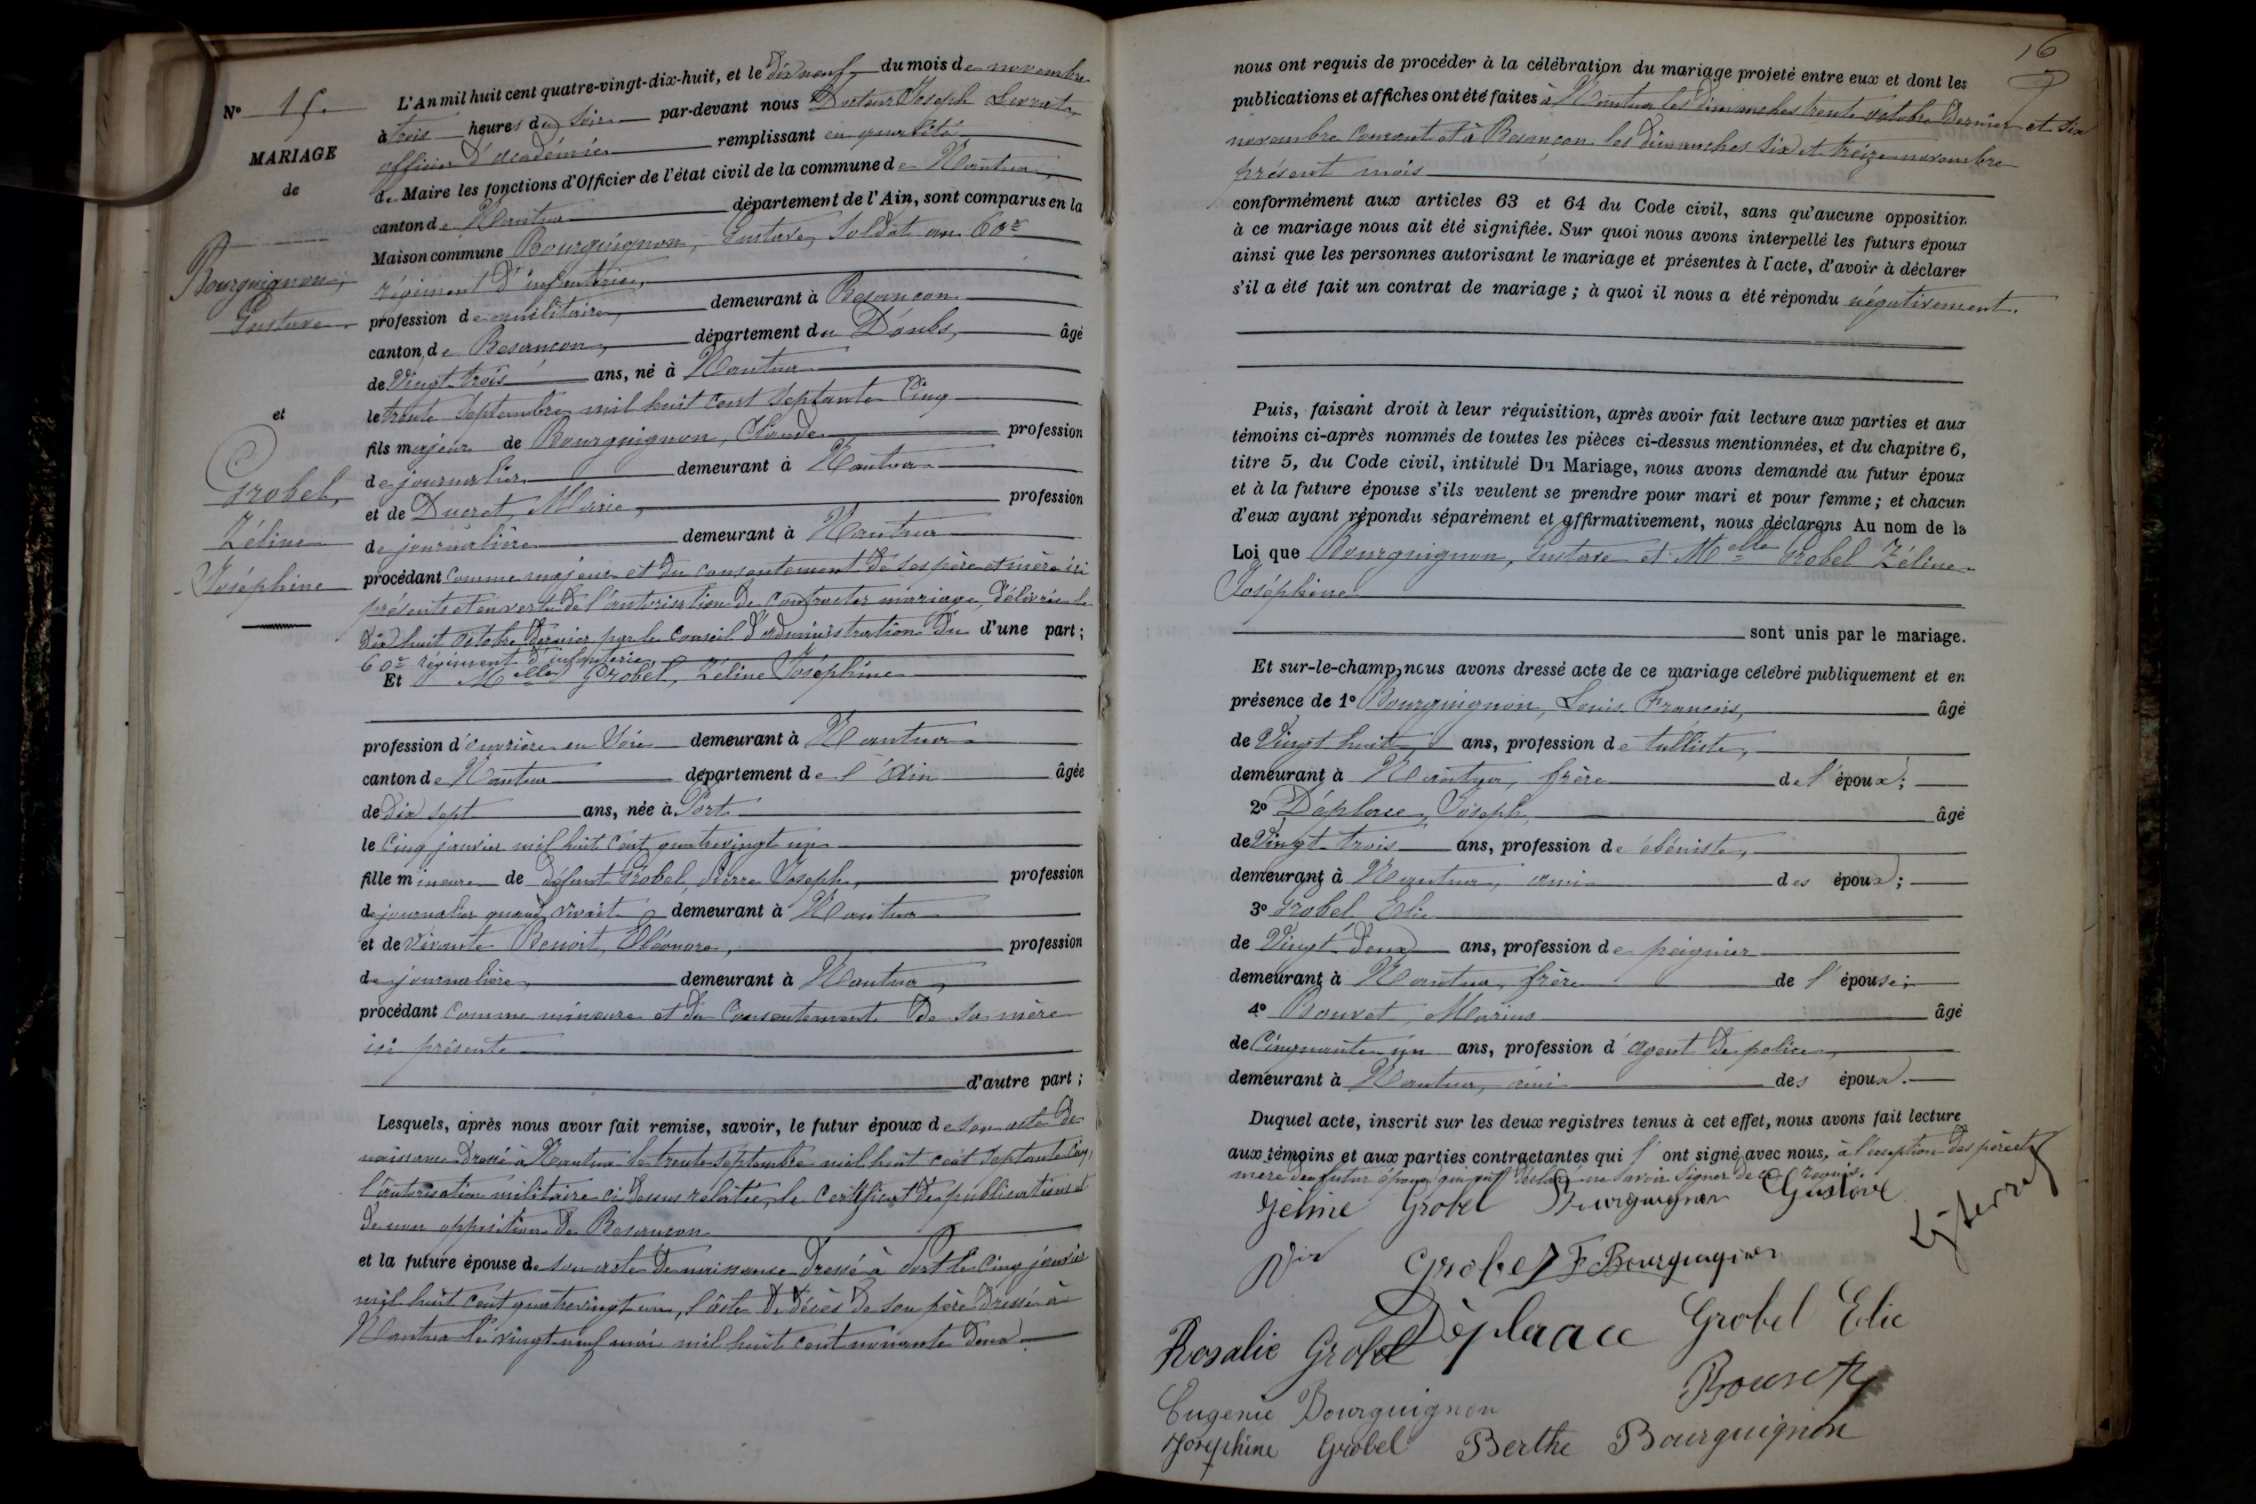 N° 15.
MARIAGE
de
Bourguignon,
Gustave.
et
Grobel,
Zéline
Joséphine
L'An mil huit cent quatre-vingt-dix-huit, et le dix neuf du mois de novembre
à trois heures du soir par-devant nous Docteur Joseph
officier d'académie remplissant en qualité
de Maire les fonctions d'Officier de l'état civil de la commune de Nantua,
canton de Nantua département de l'Ain, sont comparus en la
Maison commune Bourguignon, Gustave, Soldat au 60e
régiment d'infanterie,
profession de militaire, demeurant à Besançon
canton de Besançon, département du Doubs, âgé
de Vingt trois ans, né à Nantua
le trente Septembre mil huit cent septante Cinq
fils majeur de Bourguignon, Claude profession
de journalier demeurant à Nantua
et de Ducret, Marie, profession
de journalière demeurant à Nantua
procédant comme majeur et du consentement de ses père et mère ici
présents et en vertu de l'autorisation de contracter mariage, délivrée le
dix huit octobre dernier par le Conseil d'administration du d'une part ;
60e régiment d'infanterie
Et Melle Grobel, Zéline Joséphine
profession d'ouvrière en Soie demeurant à Nantua
canton de Nantua département de l'Ain âgée
de dix sept ans, née à Port
le Cinq janvier mil huit cent quatrevingt un
fille mineure de défunt Grobel, Pierre Joseph, profession
de journalier quand vivait demeurant à Nantua
et de vivante Benoit, Eléonore, profession
de journalière, demeurant à Nantua,
procédant comme mineure et du Consentement de sa mère
ici présente
d'autre part ;
Lesquels, après nous avoir fait remise, savoir, le futur époux de son acte de
naissance dressé à Nantua le trente septembre mil huit cent septante Cinq,
l'autorisation militaire ci dessus relatée, le certificat de publications et
de non opposition de Besançon
et la future épouse de son acte de naissance dressé à Port le Cinq janvier
mil huit cent quatrevingt un, l'acte de décès de son père dressé à
Nantua le vingt neuf mai mil huit cent nonante deux.
16
nous ont requis de procéder à la célébration du mariage projeté entre eux et dont les
publications et affiches ont été faites à Nantua les dimanches trente octobre dernier et six
novembre courant et à Besançon les dimanches six et treize novembre
présent mois
conformément aux articles 63 et 64 du Code civil, sans qu'aucune opposition
à ce mariage nous ait été signifiée. Sur quoi nous avons interpellé les futurs époux
ainsi que les personnes autorisant le mariage et présentes à l'acte, d'avoir à déclarer
s'il a été fait un contrat de mariage ; à quoi il nous a été répondu négativement.
Puis, faisant droit à leur réquisition, après avoir fait lecture aux parties et aux
témoins ci-après nommés de toutes les pièces ci-dessus mentionnées, et du chapitre 6,
titre 5, du Code civil, intitulé Du Mariage, nous avons demandé au futur époux
et à la future épouse s'ils veulent se prendre pour mari et pour femme ; et chacun
d'eux ayant répondu séparément et affirmativement, nous déclarons Au nom de la
Loi que Bourguignon, Gustave et Melle Grobel Zéline
Joséphine
sont unis par le mariage.
Et sur-le-champ, nous avons dressé acte de ce mariage célébré publiquement et en
présence de 1° Bourguignon, Louis François, âgé
de Vingt huit ans, profession de tulliste,
demeurant à Nantua, frère de l'époux ;
2° Déplace, Joseph, âgé
de Vingt trois ans, profession d'ébéniste,
demeurant à Nantua, ami des époux ;
3° Grobel Elie
de Vingt deux ans, profession de peignier
demeurant à Nantua, frère de l'épouse ;
4° Bouvet, Marius âgé
de Cinquante un ans, profession d'agent de police,
demeurant à Nantua, ami des époux.
Duquel acte, inscrit sur les deux registres tenus à cet effet, nous avons fait lecture
aux témoins et aux parties contractantes qui l'ont signé avec nous, à l'exception des père et
mère du futur époux qui ont déclaré ne savoir signer de ce requis.
Jéline Grobel Bourguignon Gustave
Grobel F Bourguignon
Déplaace Grobel Elie
Rosalie Grobel
Bouvet
Eugenie Bourguignon
Josephine Grobel Berthe Bourguignon